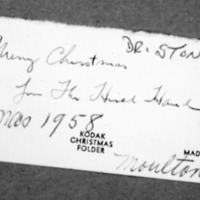 DR. STON
Merry Christmas
From The Hired Hand
mas 1958
KODAK
CHRISTMAS
FOLDER
MAD
Moulton